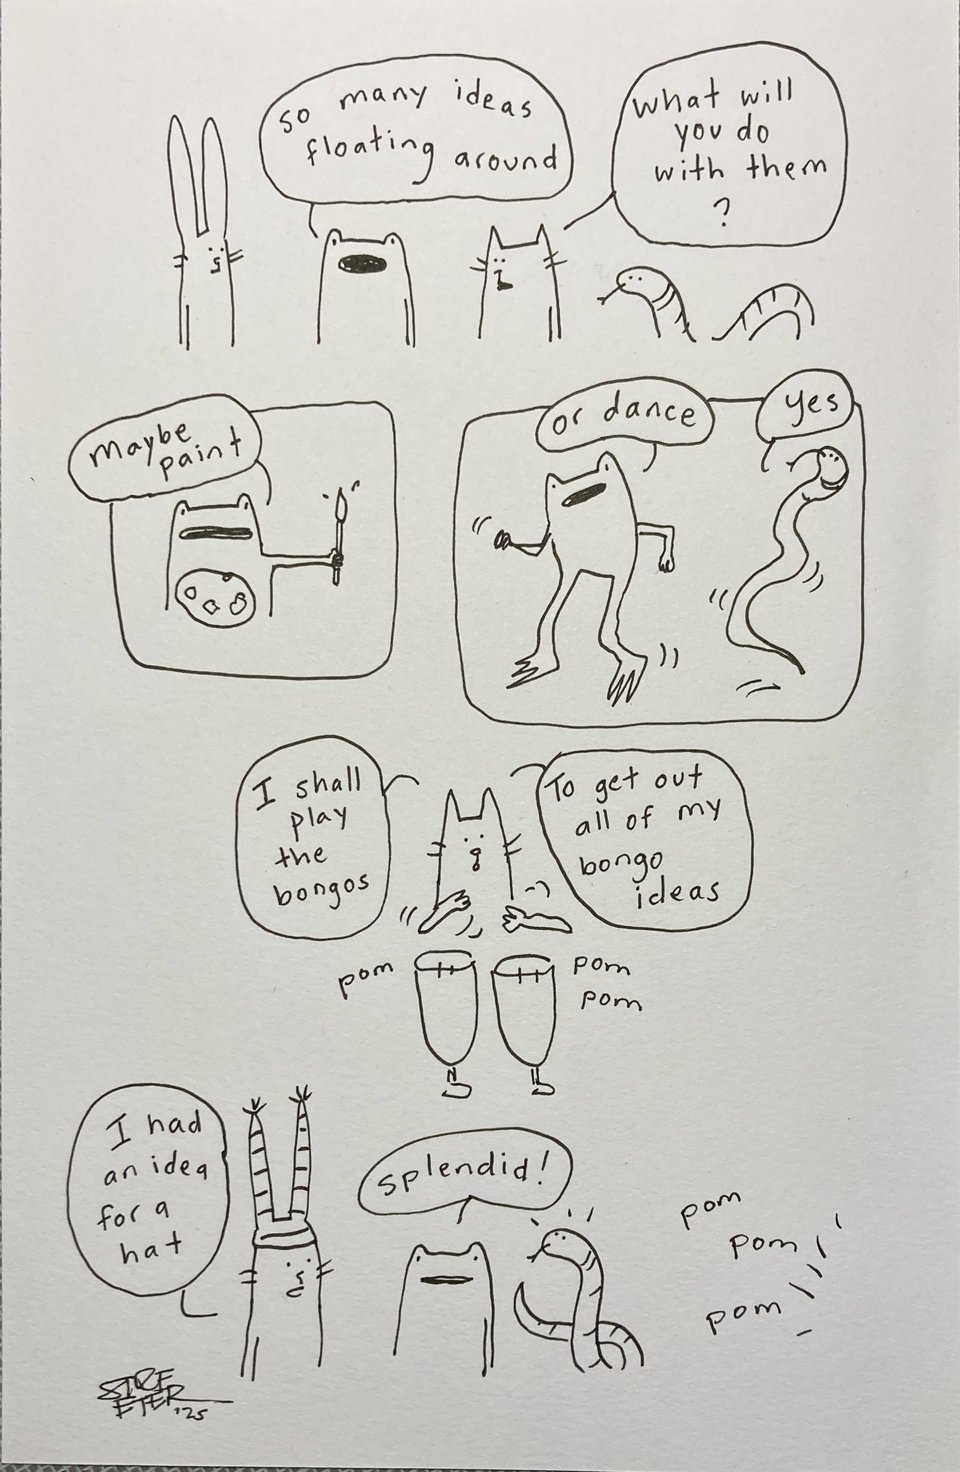 so many ideas
floating around
what will
you do
with them
?
maybe
paint
or dance
yes
I shall
play
the
bongos
To get out
all of my
bongo
ideas
pom
pom
pom
I had
an idea
for a
hat
splendid!
pom
pom
pom
STREETER
'25